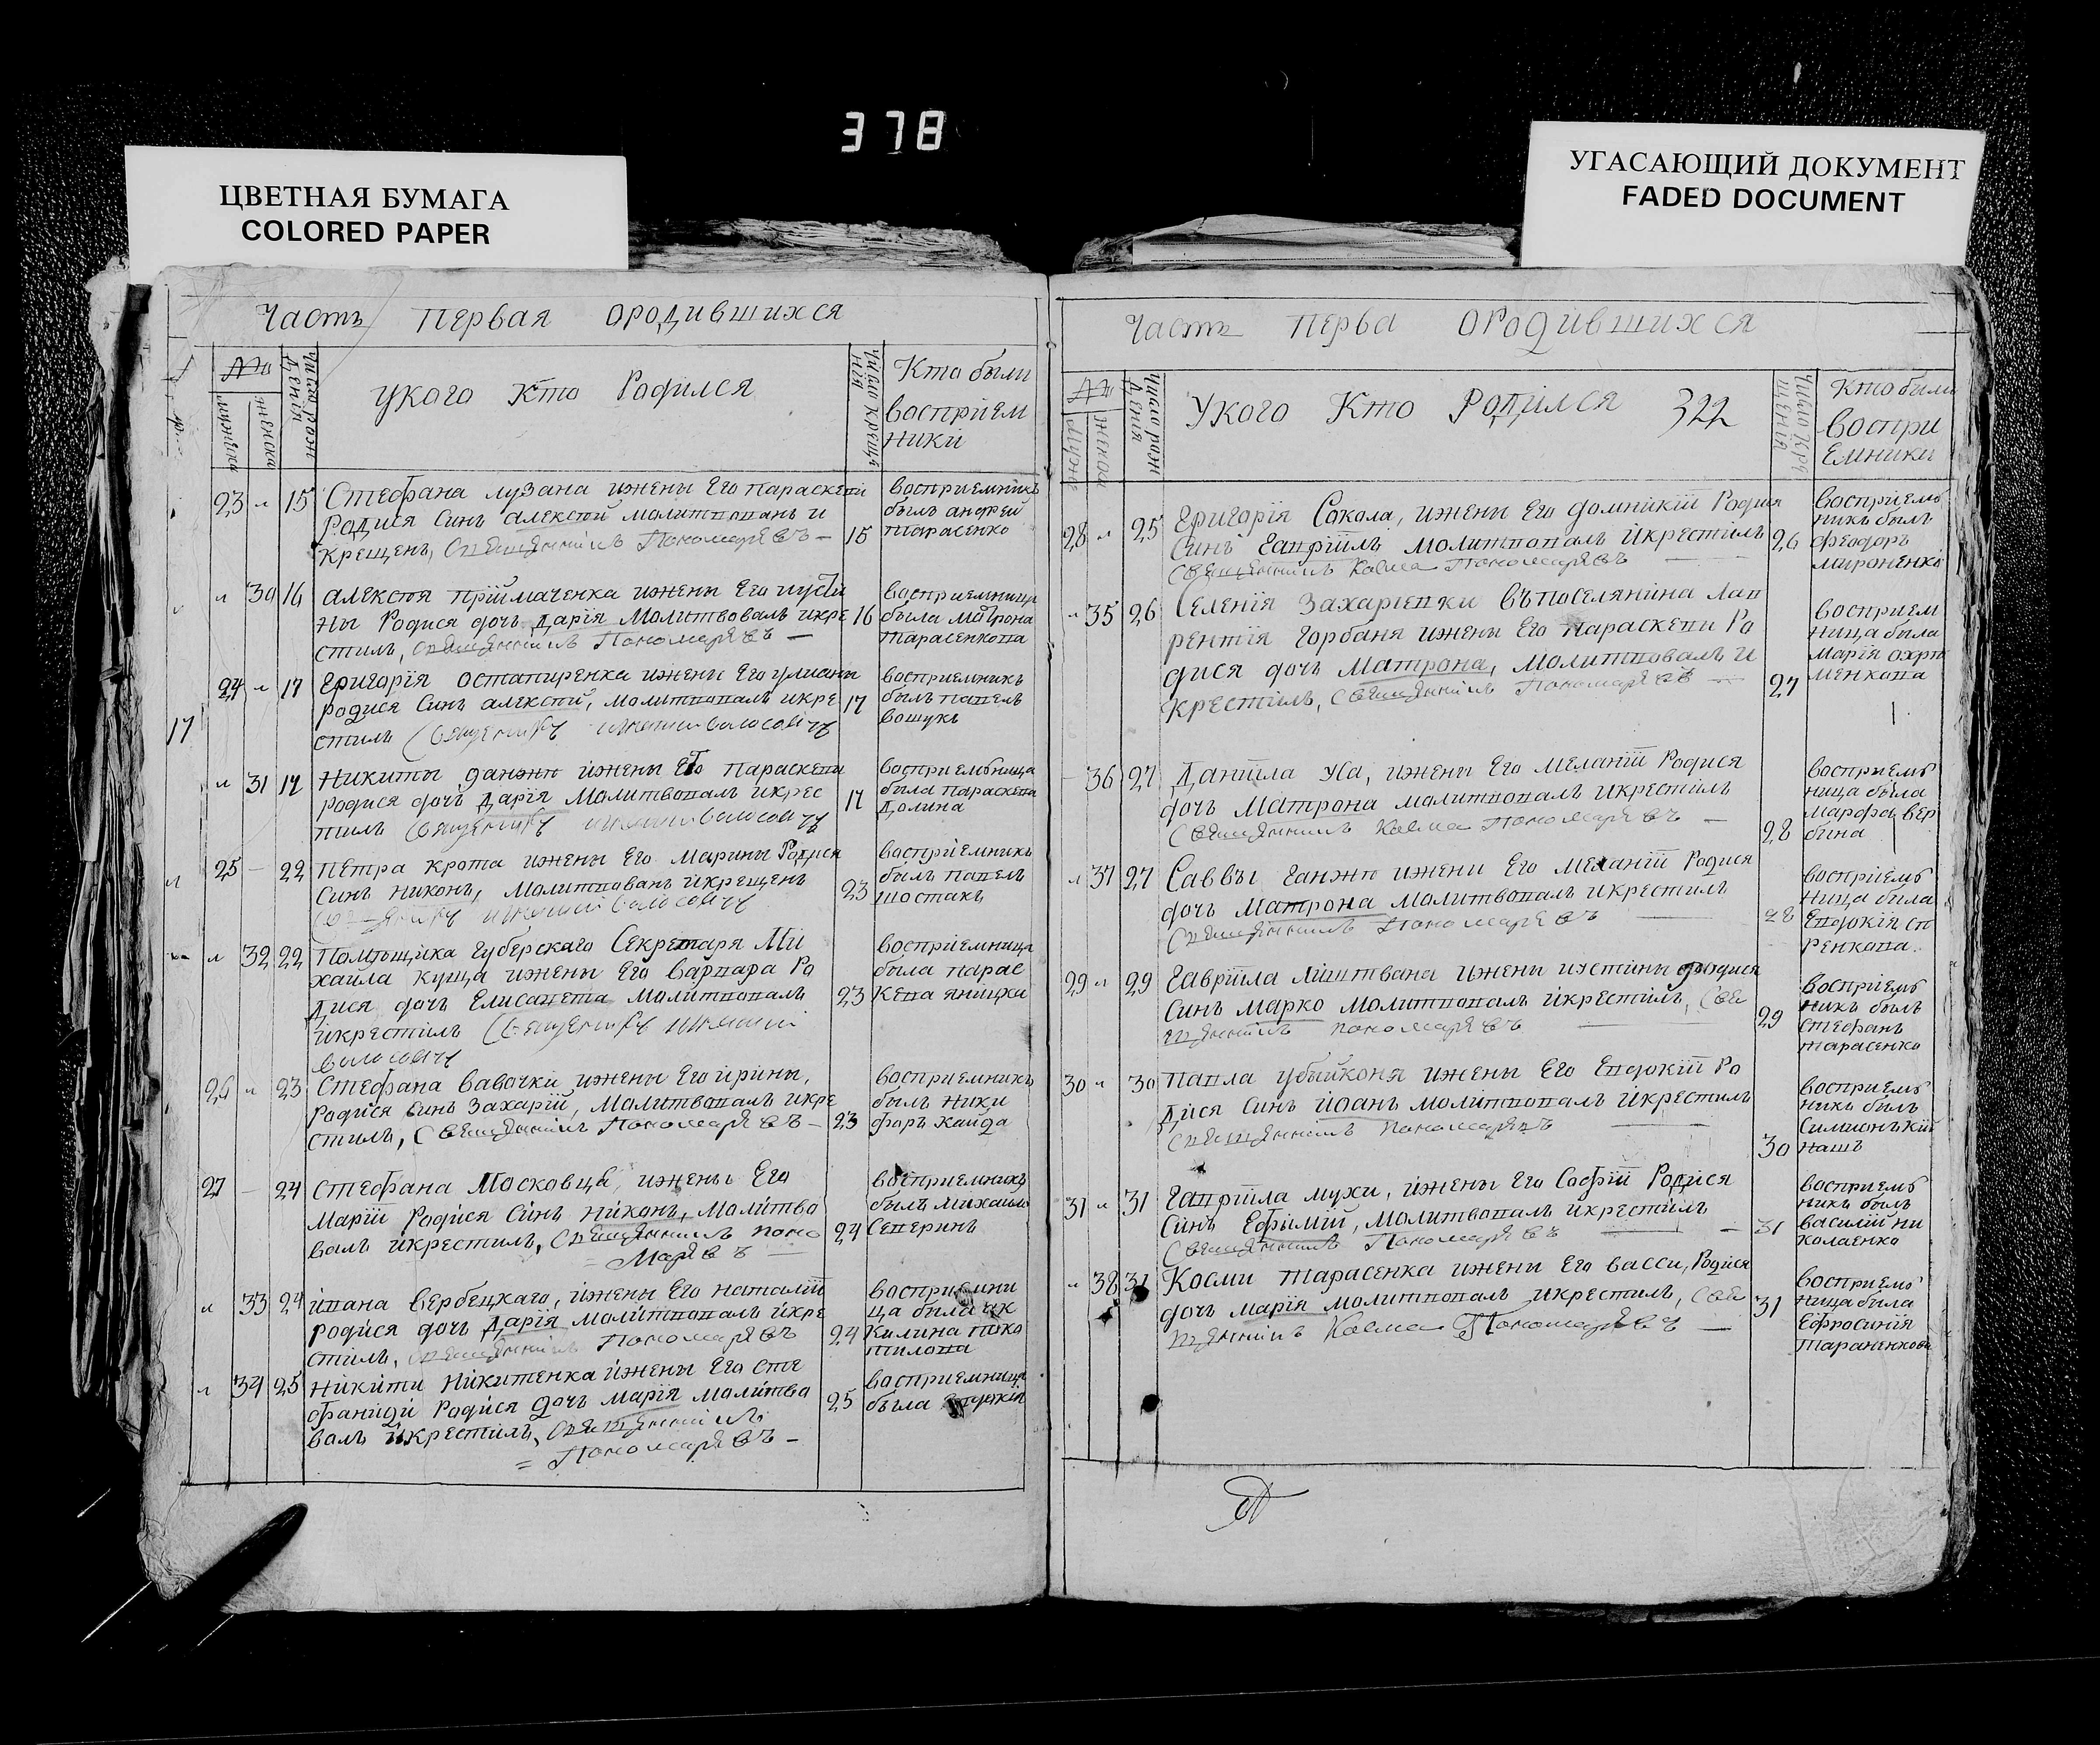 378
ЦВЕТНАЯ БУМАГА
COLORED PAPER
УГАСАЮЩИЙ ДОКУМЕНТ
FADED DOCUMENT
Часть Первая ородившихся
№
мужеска
женска
число рожденія
укого Кто Родился
Кто были
воспрiем
ники
23 15 Стефана лузана ижены Его параскеви
Родися Синъ алексѣй молитвованъ и
Крещенъ, Священникъ Пономаревъ
15
восприемникъ
былъ андрей
тарасенко
30 16 алексѣя прiймаченка ижены Его иусти
ны Родися дочь Дарiя Молитвовалъ икре
стилъ, Священникъ Пономаревъ
16
восприемница
была матрона
тарасенкова
17
24 17 Григорiя остапиренка ижены Его улианы
родися Синъ алексѣй, молитвовалъ икре
стилъ Священникъ
17
восприемникъ
былъ павелъ
вошукъ
31 17 Никиты ижены Его параскеви
родися дочь Дарiя Молитвовалъ икрес
тилъ Священникъ
17
восприемница
была параскева
долина
25 22 Петра крота ижены Его Марины Родися
Синъ никонъ, Молитвованъ икрещенъ
23
восприемникъ
былъ павелъ
шостакъ
32 22 Помѣщика губерскаго Секретаря Ми
хаила куща ижены Его варвара Ро
дися дочь Елисавета молитвовалъ
икрестилъ Священникъ
23
восприемница
была парас
кева
26 23 Стефана вавочки ижены Его ирины,
родися синъ Захарiй, молитвовалъ икре
стилъ, Священникъ Пономаревъ
23
восприемникъ
былъ Ники
форъ
27 24 Стефана Московца ижены Его
Марiи Родися Синъ никонъ, Молитво
валъ икрестилъ, Священникъ поно
маревъ
24
восприемникъ
былъ михаилъ
Северинъ
33 24 ивана вербецкаго, ижены Его наталiи
родися дочь Дарiя молитвовалъ икре
стилъ, Священникъ Пономаревъ
24
восприемни
ца была ак
килина поко
тилова
34 25 Никити Никитенка ижены Его сте
фаниди Родися дочь марiя молитво
валъ икрестилъ, Священникъ
Пономаревъ
25
восприемница
была
Часть Перва ородившихся
№
женска
число рожденія
Укого Кто Родился 322
Кто были
воспри
емники
28 25 Григорiя Сокола, ижены Его домникiи Родися
Синъ гаврiилъ молитвовалъ икрестилъ
Священникъ Косма Пономаревъ
26
воспрiем
никъ былъ
феодоръ
мироненко
35 26 Селенiя Захарiевки поселянина лав
рентiя горбаня ижены Его параскеви Ро
дися дочь Матрона, молитвовалъ и
крестилъ, Священникъ Пономаревъ
27
воспрiем
ница была
марiя охри
менкова
36 27 Данiила уса, ижены Его меланiи Родися
дочь Матрона молитвовалъ икрестилъ
Священникъ Косма Пономаревъ
28
воспрiем
ница была
марфа вер
бина
37 27 Саввы ижени Его меланiи Родися
дочь Матрона молитвовалъ икрестилъ
Священникъ Пономаревъ
28
воспрiем
ница была
Евдокiя
29 29 Гаврiила лиштвана ижени иустины родися
Синъ марко молитвовалъ икрестилъ, Свя
щенникъ пономаревъ
29
воспрiем
никъ былъ
стефанъ
тарасенко
30 30 павла убыйконя ижены Его Евдокiи Ро
дися Синъ iоанъ молитвовалъ икрестилъ
Священникъ пономаревъ
30
воспрiем
никъ былъ
31 31 Гаврiила мухи, ижены Его Софiи Родися
Синъ Ефимiй, молитвовалъ икрестилъ
Священникъ Пономаревъ
31
воспрiем
никъ былъ
василiй ни
колаенко
38 31 Косми тарасенка ижени Его васси, Родися
дочь марiя молитвовалъ икрестилъ, Свя
щенникъ Косма Пономаревъ
31
воспрiем
ница была
Ефросинiя
тараненкова